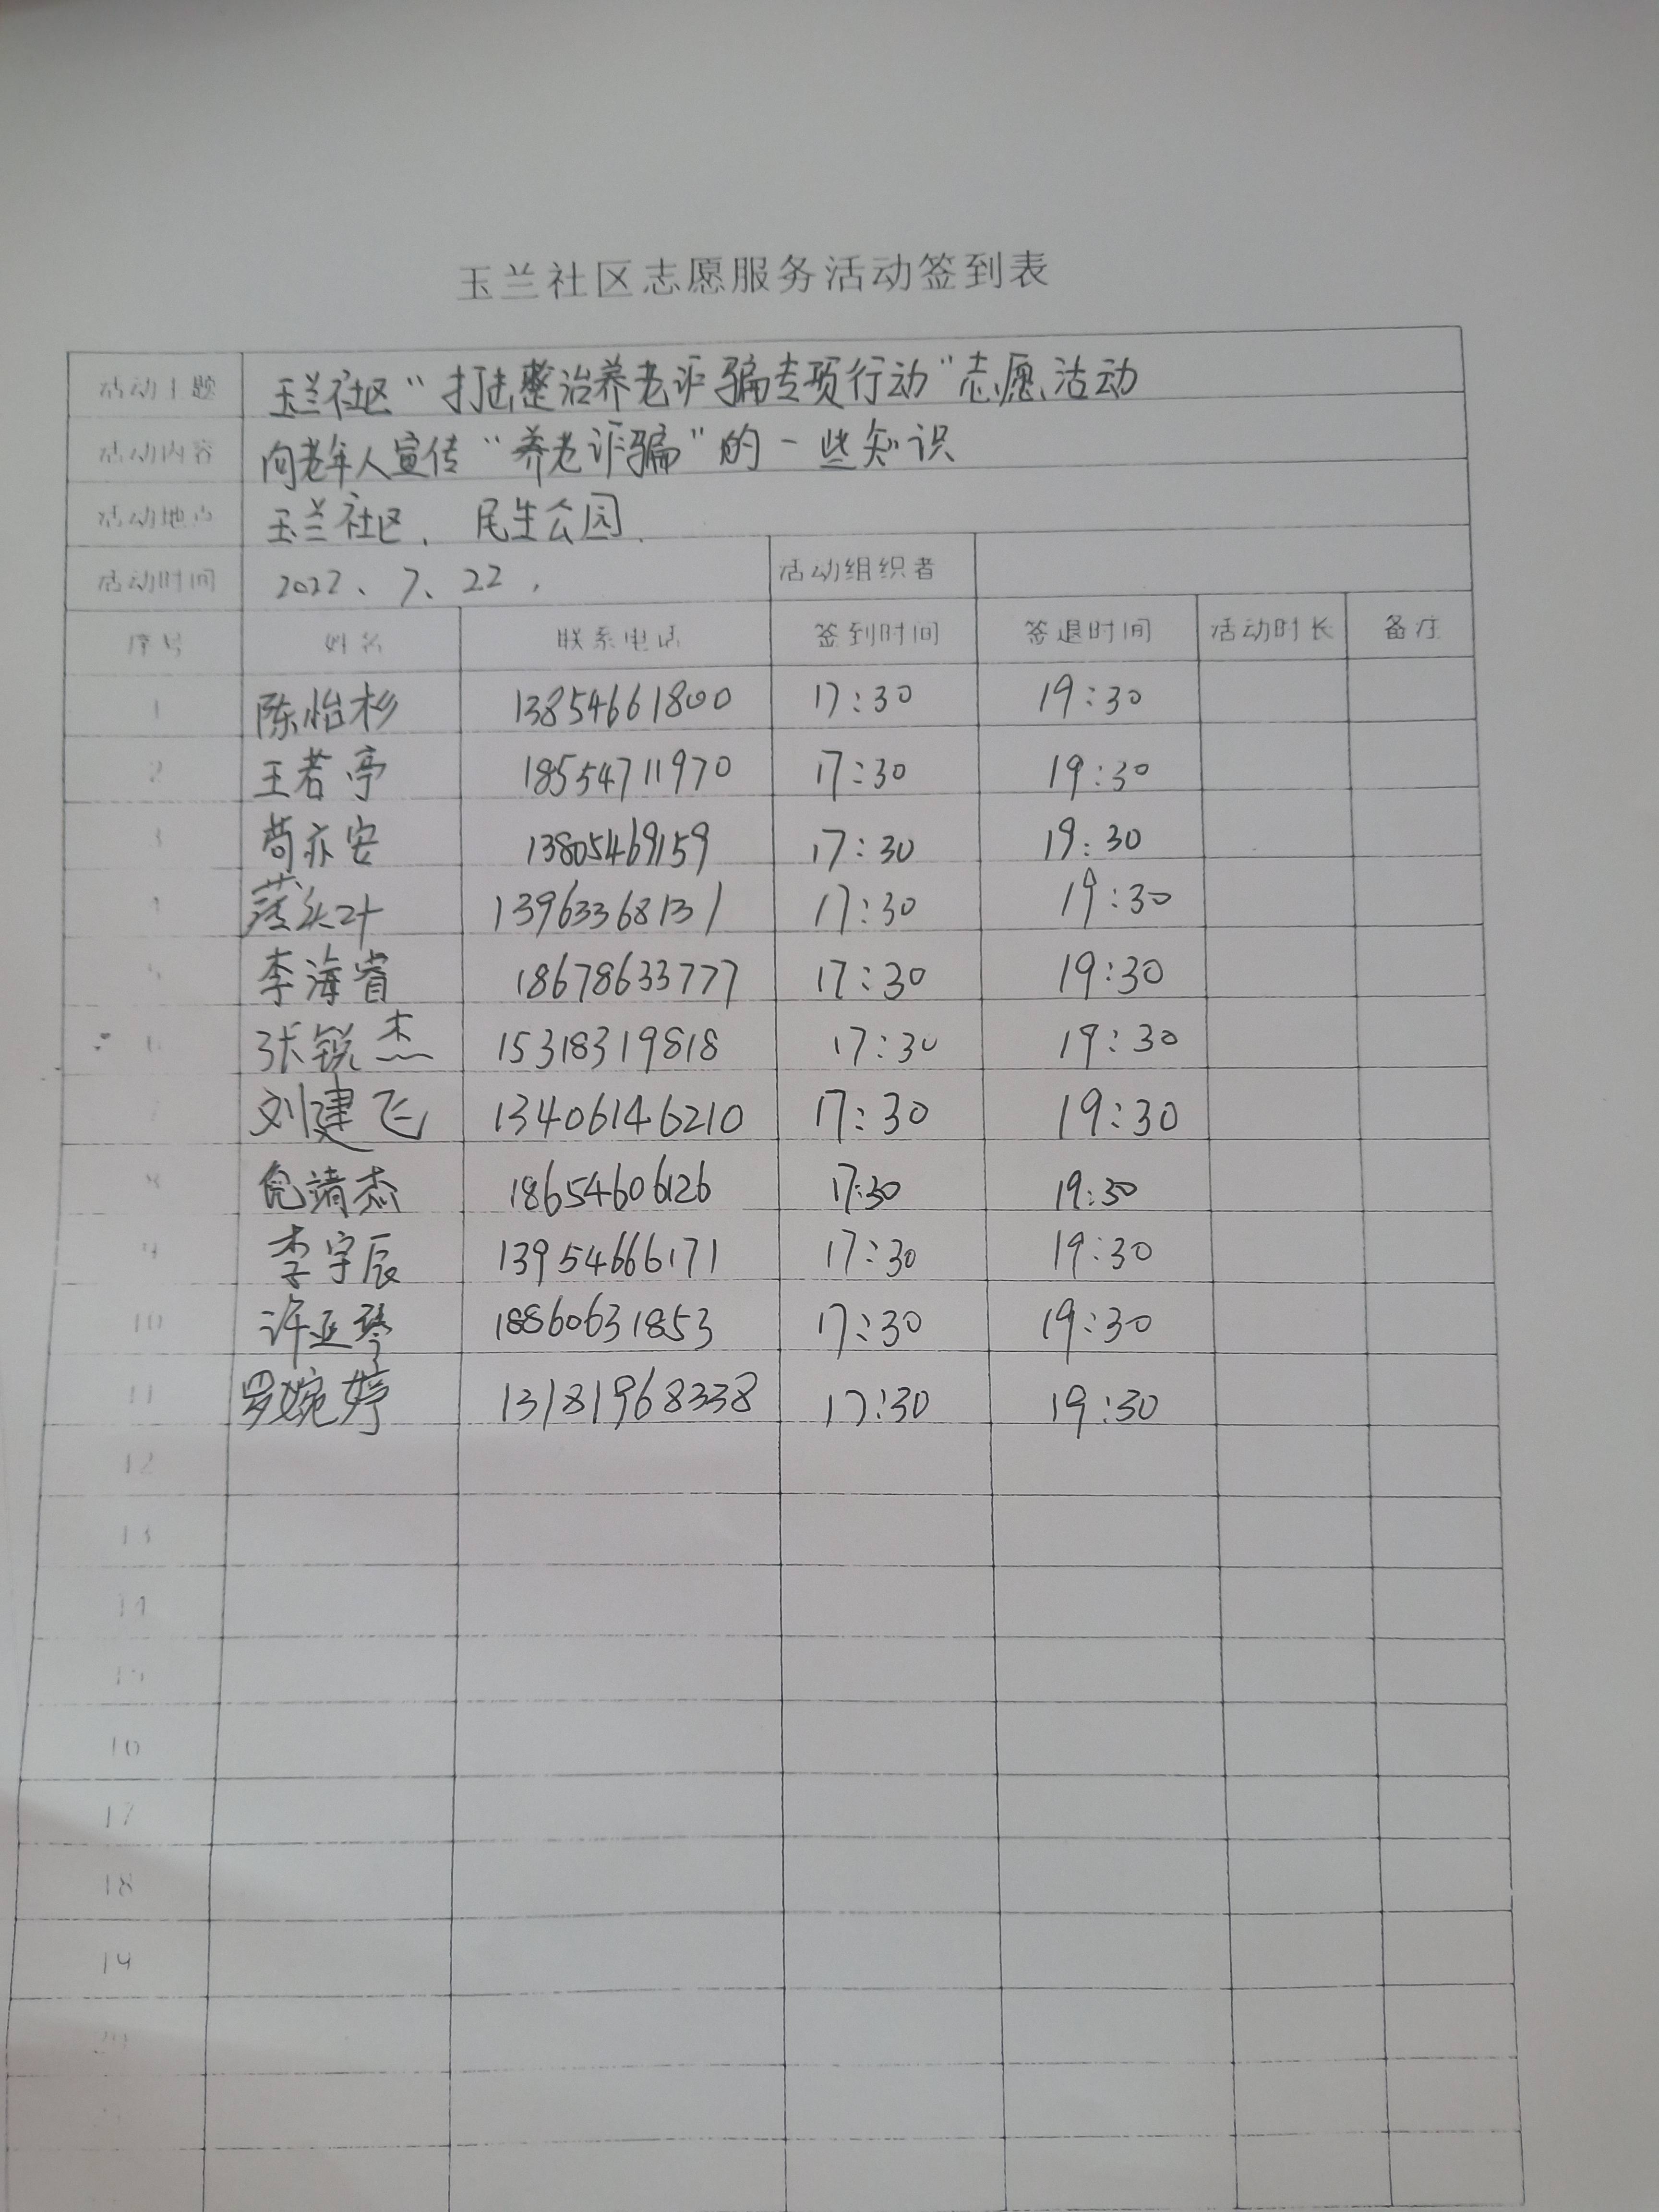 玉兰社区志愿服务活动签到表
活动主题 玉兰社区“打击整治养老诈骗专项行动”志愿活动
活动内容 向老年人宣传“养老诈骗”的一些知识
活动地点 玉兰社区、民生公园.
活动时间 2022、7、22, 活动组织者
序号 姓名 联系电话 签到时间 签退时间 活动时长 备注
1 陈怡杉 13854661800 17:30 19:30
2 王若亭 18554711970 17:30 19:30
3 苟亦安 13805469159 17:30 19:30
4 13963368131 17:30 19:30
5 李海睿 18678633777 17:30 19:30
6 张锐杰 15318319818 17:30 19:30
7 刘建飞 13406146210 17:30 19:30
8 倪靖杰 18654606126 17:30 19:30
9 李宇辰 13954666171 17:30 19:30
10 许亚琴 18860631853 17:30 19:30
11 罗婉婷 13181968338 17:30 19:30
12
13
14
15
16
17
18
19
20